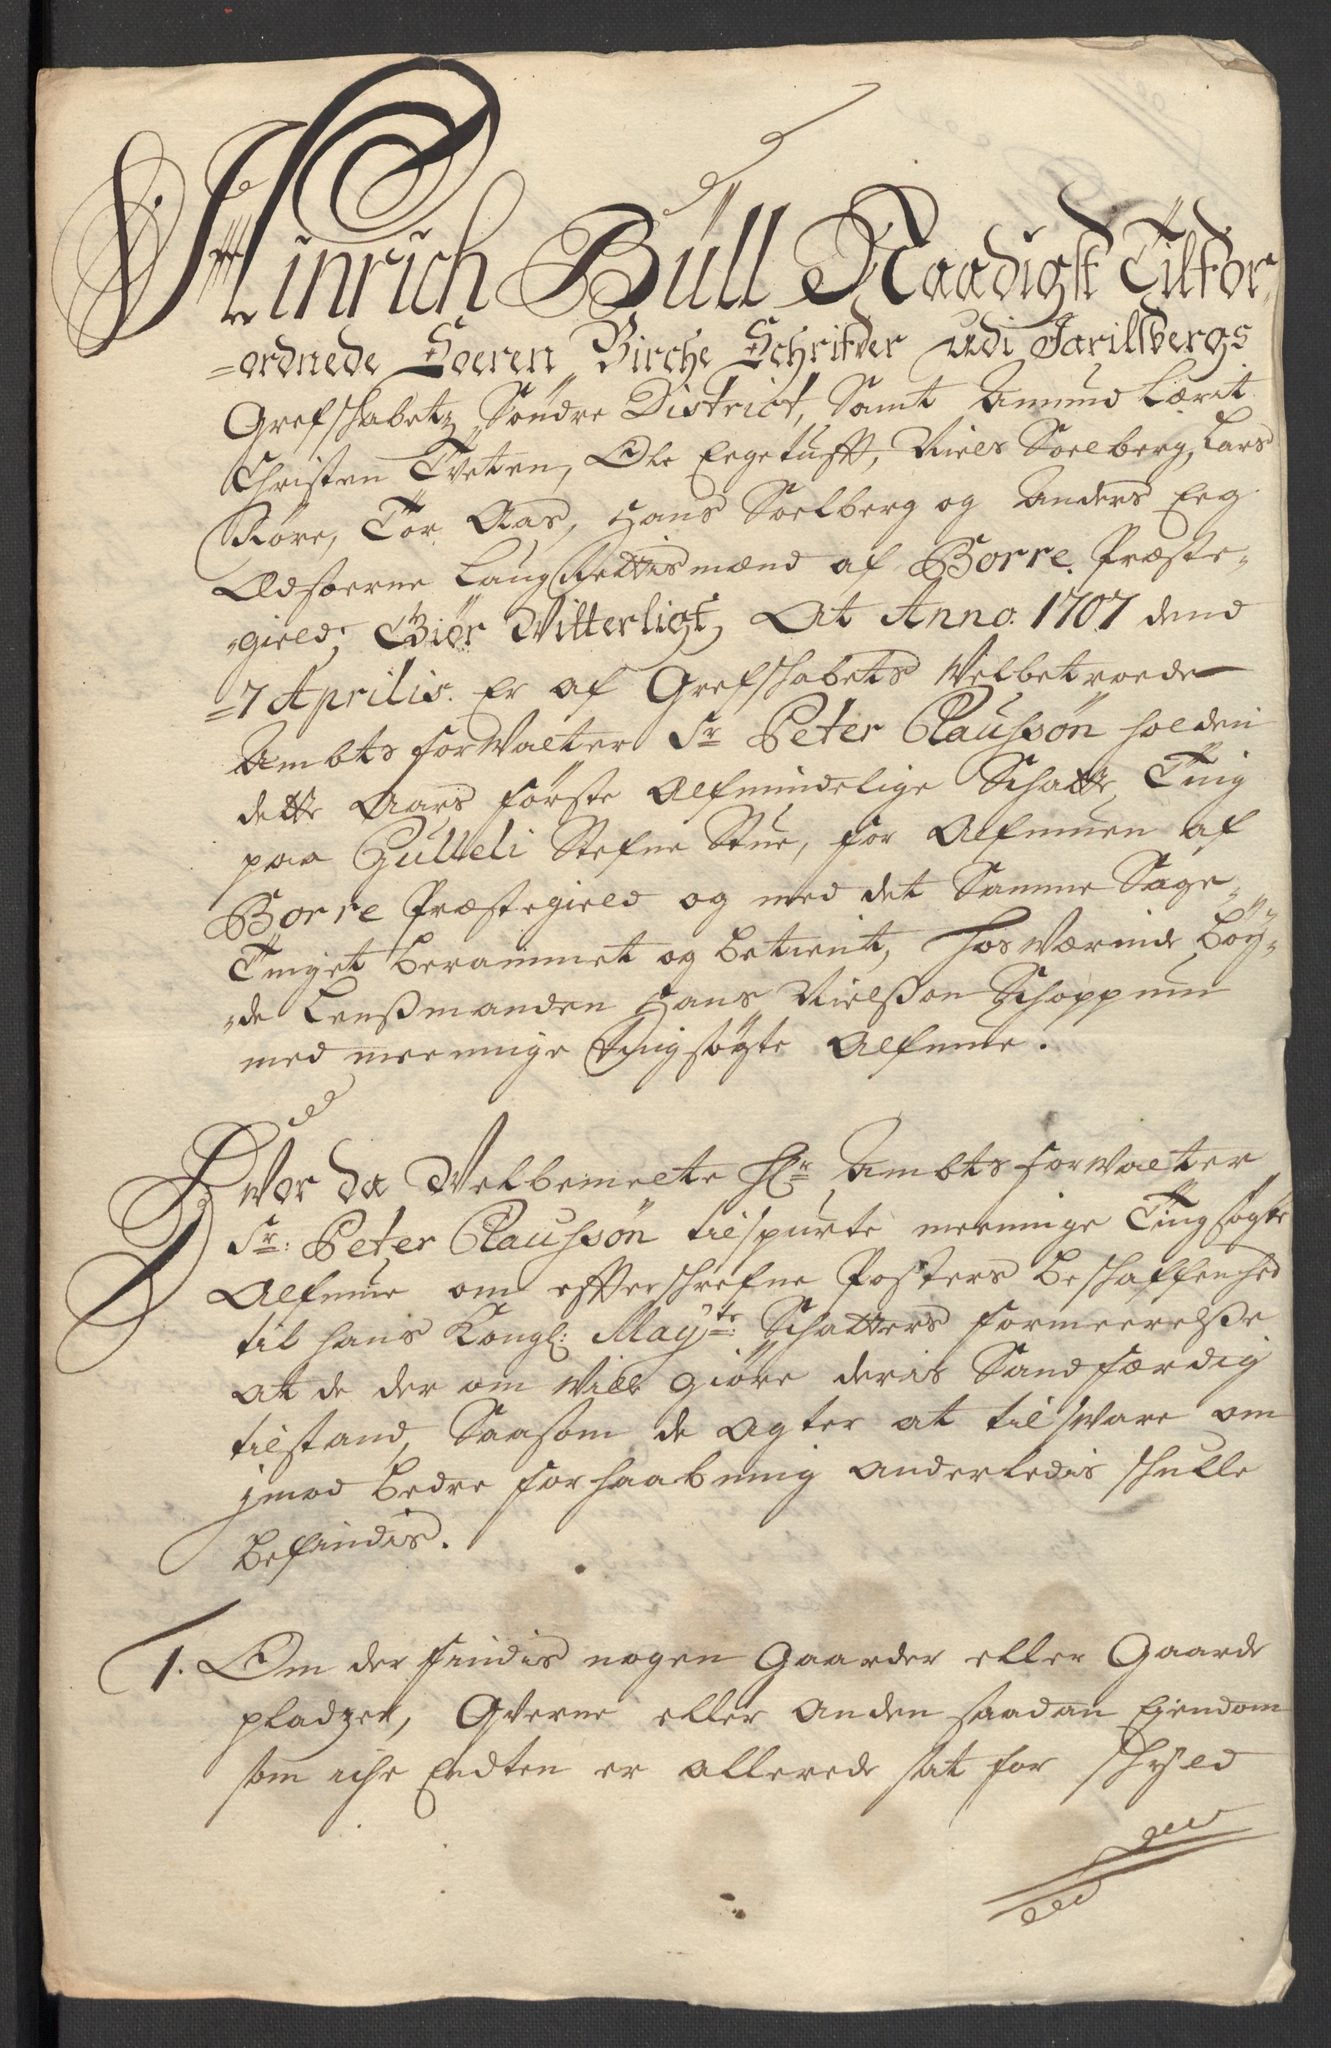 Hinrich Büll Naadigst Tilfor=
=ordnede Soeren Birche Schrifver udi Jarillsbergs
Grefschabetz Søndre District, Samt Amund Lærit
Christen Tveten, Ole Eegetufft, Niels Soelberg, Lars
Røre, Tor Aas, Hans Soelberg og Anders Eeg
Edsoerne LaugRettismænd af Borre Præste=
=gield; Giør Vitterligt, At Anno. 1707 dend
=7 Aprilis. Er af Grefschabets Velbetroede
Ambtsforvalter Sr Peter Clausøn holden
dette Aars første Alfmindelige Schatte Ting
paa Gulleli Stefne Stue, for Alfmuen af
Borre Præstegield og med det Samme Sage=
Tinget berammet og betient, hosværende Bøy=
=de Lensmanden Hans Nielsøn Schoppum
med meenige Tingsøgte Alfmue.
Hvor da Velbemelte Hr Ambtsforvalter
Sr: Peter Clausøn tilspurte meenige Tingsøgte
Alfmue om effterschrefne Posters beschaffenhed
til hans Kongl: Mayts: Schatters formeerelse
at de der om ville giøre deris Sandfærdig
tilstand, Saasom de agter at tilsvare om
jmod bedre forhaabning anderledis schulle
befindis.
1. Om der findis nogen Gaarder eller Gaarde
pladzer, Qverne eller anden saadan Ejendom
som iche Endten er allerede sat for schyld